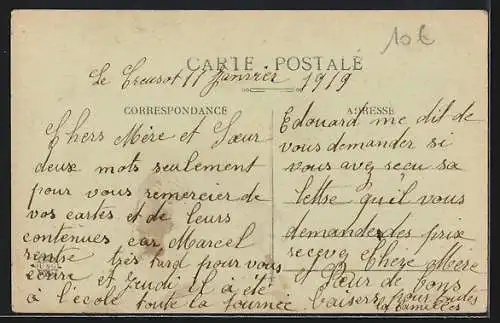 10€
CARTE POSTALE
Le Creusot 11 Janvier 1919
CORRESPONDANCE
Chers Mère et Sœur
deux mots seulement
pour vous remercier de
vos cartes et de leurs
contenues car Marcel
rentre très tard pour vous
écrire et jeudi il a été
à l'école toute la journée
ADRESSE
Edouard me dit de
vous demander si
vous avez reçu sa
lettre qu'il vous
demander des prix
recevez Chère Mère
Sœur de bons
baisers pour toutes
la familles